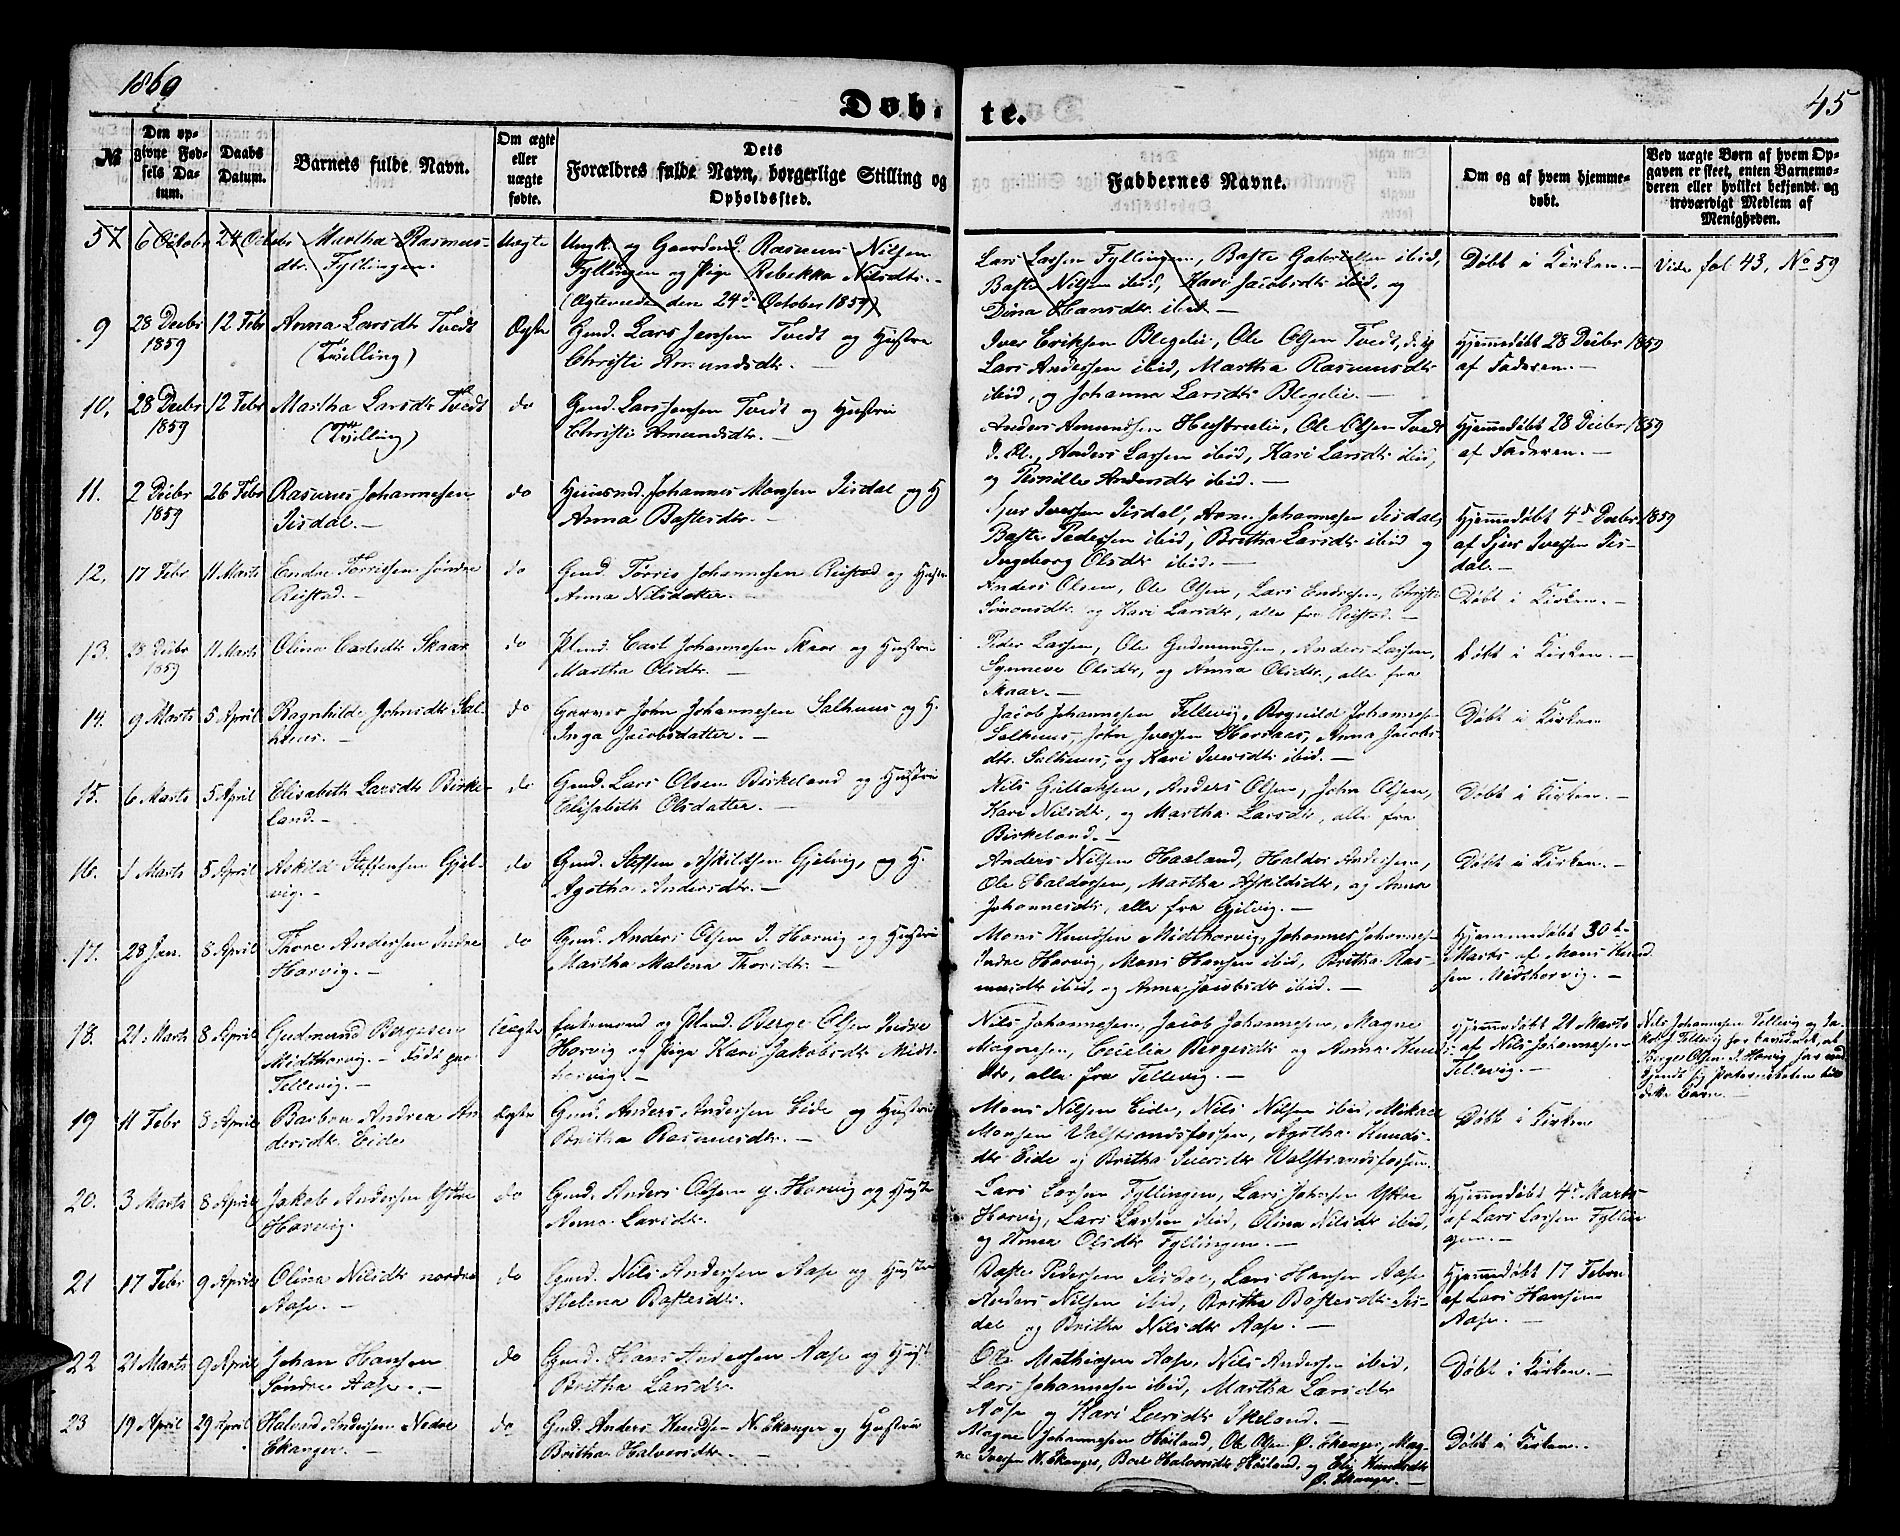 1860
45
Døbte.
№
Den opgivne Fødsels Datum.
Daabs Datum.
Barnets fulde Navn.
Om ægte eller uægte fødte.
Dets Forældres fulde Navn, borgerlige Stilling og Opholdssted.
Faddernes Navne.
Om og af hvem hjemmedøbt.
Ved uægte Børn af hvem Opgaven er skeet, enten Barnemoderen eller hvilket bekjendt og troværdigt Medlem af Menigheden.
57 6 Octobr 24 Octobr Martha Rasmus-
dtr. Fyllingen.
Uægte
Ungk. og Gaardmd. Rasmus Nilsen
Fyllingen og Pige Rebekka Nilsdtr. -
(Ægteviede den 24de October 1859)
Lars Larsen Fyllingen, Baste Gabrielsen ibid,
Baste Nilsen ibid, Kari Jacobsdtr ibid, og
Dina Hansdtr ibid -
Døbt i Kirken. -
Vide fol 43, No 59
9 28 Decbr 12 Febr Anna Larsdtr Tvedt
1859 (Tvilling)
Ægte
Gmd. Lars Jensen Tvedt og Hustru
Christi Amundsdtr. -
Iver Eriksen Blegelie, Ole Olsen Tvedt, d. y
Lars Andersen ibid, Martha Rasmusdtr
ibid, og Johanna Larsdtr Blegelie. -
Hjemmedøbt 28 Decbr 1859
af Faderen. -
10, 28 Decbr 12 Febr Martha Larsdtr Tvedt
1859 (Tvilling)
do
Gmd. Lars Jensen Tvedt og Hustru
Christi Amundsdtr. -
Anders Amundsen Hestnelie, Ole Olsen Tvedt
d. Æl., Anders Larsen ibid, Kari Larsdtr ibid,
og Pernille Andersdtr ibid. -
Hjemmedøbt 28 Decbr 1859
af Faderen. -
11. 2 Decbr 26 Febr Rasmus Johannesen
1859 Tisdal. -
do
Huusmd. Johannes Monsen Tisdal og H
Anna Bastesdtr. -
Sjur Iversen Tisdal, Arne Johannesen Tisdal,
Baste Pedersen ibid, Britha Larsdtr ibid og
Ingeborg Olsdtr ibid. -
Hjemmedøbt 4de Decbr 1859
af Sjur Iversen Tis-
dal. -
12, 17 Febr 11 Marts Endre Torrisen søndre
Reistad. -
do
Gmd. Torris Johannesen Reistad og Hustru
Anna Nilsdatter. -
Anders Olsen, Ole Olsen, Lars Endresen, Christi
Simonsdtr. og Kari Larsdtr, alle fra Reistad. -
Døbt i Kirken. -
13. 28 Decbr 11 Marts Olina Carlsdtr Skaar
1859
do
Plmd. Carl Johannesen Skaar og Hustru
Martha Olsdtr. -
Peder Larsen, Ole Gudmundsen, Anders Larsen,
Synneve Olsdtr, og Anna Olsdtr., alle fra
Skaar. -
Døbt i Kirken. -
14. 9 Marts 5 April Ragnhilde Johnsdtr Sal-
huus. -
do
Garver John Johannesen Salhuus og H.
Inga Jacobsdatter. -
Jacob Johannesen Tellevig, Ragnilde Johannesd
Salhuus, John Iversen Hordaas, Anna Jacobs-
dtr. Salhuus, og Kari Iversdtr ibid. -
Døbt i Kirken
15. 6 Marts 5 April Elisabeth Larsdtr Birke-
land. -
do
Gmd. Lars Olsen Birkeland og Hustru
Elisabeth Olsdatter. -
Nils Gullaksen, Anders Olsen, John Olsen,
Kari Nilsdtr, og Martha Larsdtr, alle fra
Birkeland. -
Døbt i Kirken. -
16. 1 Marts 5 April Askild Steffensen Gjel-
vig. -
do
Gmd. Steffen Askildsen Gjelvig, og H.
Agatha Andersdtr. -
Anders Nilsen Haaland, Haldor Andersen,
Ole Haldorsen, Martha Askildsdtr, og Anna
Johannesdtr, alle fra Gjelvig. -
Døbt i Kirken. -
17. 28 Jan. 8 April Thore Andersen Indre
Horvig. -
do
Gmd. Anders Olsen I. Horvig og Hustru
Martha Malena Thorsdtr. -
Mons Knudsen Midthorvig, Johannes Johannes-
Indre Horvig, Mons Hansen ibid, Britha Ras-
musdtr ibid, og Anna Jacobsdtr ibid. -
Hjemmedøbt 30te
Marts af Mons Knud-
sen Midthorvig. -
18. 21 Marts 8 April Gudmund Børgesen
Midthorvig. - Født paa
Tellevig. -
Uægte
Enkemand og Plmd. Børge Olsen Indre
Horvig og Pige Kari Jakobsdtr Midt-
horvig. -
Nils Johannesen, Jacob Johannesen, Magne
Magnesen, Cecilia Børgesdtr og Anna Knuds-
dtr, alle fra Tellevig. -
Hjemmedøbt 21 Marts
af Nils Johannesen
Tellevig. -
Nils Johannesen Tellevig og Ja-
kob J. Tellevig har bevidnet, at
Børge Olsen I. Horvig har ved-
kjendt sig Paterniteten til
dette Barn. -
19 11 Febr 8 April Barbra Andrea An-
dersdtr Eide
Ægte
Gmd. Anders Andersen Eide og Hustru
Britha Rasmusdtr. -
Mons Nilsen Eide, Nils Nilsen ibid, Mikael
Monsen Valstrandsfossen, Agatha Knuds-
dtr Eide og Britha Iversdtr Valstrandsfossen.
Døbt i Kirken
20. 3 Marts 8 April Jakob Andersen Ystre
Horvig.
do
Gmd. Anders Olsen y. Horvig og Hustr
Anna Larsdtr.
Lars Larsen Fyllingen, Lars Johnsen Ystre
Horvig, Lars Larsen ibid, Olina Nilsdtr ibid,
og Anna Olsdtr Fyllingen. -
Hjemmedøbt 4de Marts
af Lars Larsen Fyllin-
gen. -
21 17 Febr 9 April Olina Nilsdtr nordre
Aase. -
do
Gmd. Nils Andersen Aase og Hustru
Helena Bastesdtr.
Baste Pedersen Tisdal, Lars Hansen Aase
Anders Nilsen ibid, Britha Bastesdtr Tis-
dal og Britha Nilsdtr Aase. -
Hjemmedøbt 17 Febru
af Lars Hansen
Aase. -
22 21 Marts 9 April Johan Hansen
Søndre Aase. -
do
Gmd. Hans Andersen Aase og Hustr
Britha Larsdtr.
Ole Mathiasen Aase, Nils Andersen ibid,
Lars Johannesen ibid, Martha Larsdtr
Aase og Kari Larsdtr Ikeland. -
Døbt i Kirken. -
23 19 April 29 April Halvord Andersen Nedre
Ekanger. -
do
Gmd. Anders Knudsen N. Ekanger og Hustru
Britha Halvorsdtr. -
Magne Johannesen Høiland, Ole Olsen Ø. Ekanger, Mag-
ne Iversen N. Ekanger, Boel Halvorsdtr Høiland og Eli Knudsdtr
Ø. Ekanger. -
Døbt i Kirken.